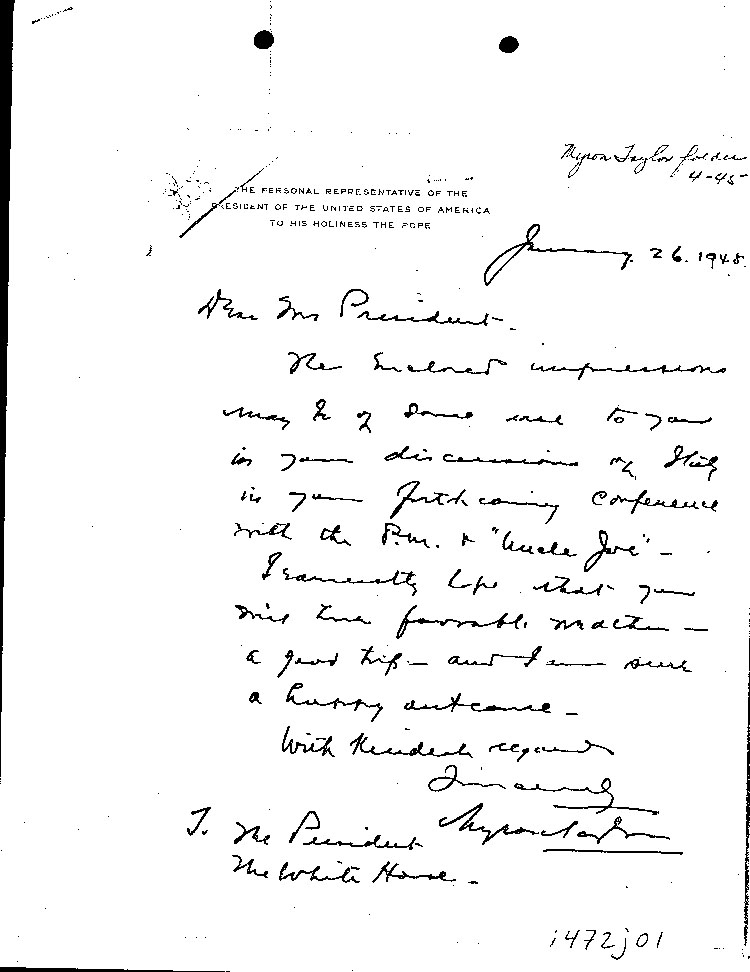 Myron Taylor folder
4-45
THE PERSONAL REPRESENTATIVE OF THE
PRESIDENT OF THE UNITED STATES OF AMERICA
TO HIS HOLINESS THE POPE
January 26. 1945.
Dear Mr President.
The Enclosed impressions
may be of some use to you
in your discussions of Italy
in your forthcoming Conference
with the P.M. & "Uncle Joe" —
I earnestly hope that you
will have favorable weather —
a good trip — and I am sure
a happy outcome —
With Kindest regards
Sincerely
Myron Taylor
To The President
The White House —
i472j01